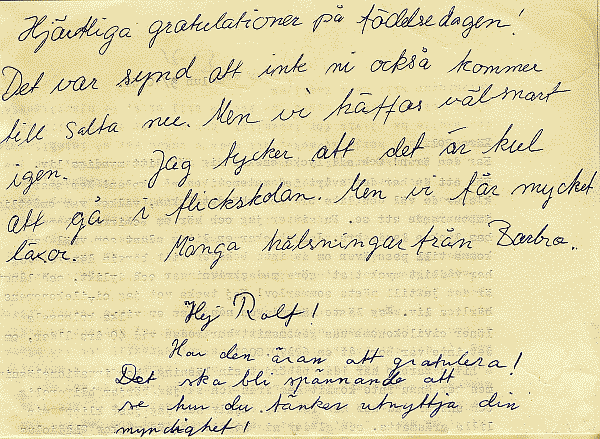 Hjärtliga gratulationer på födelsedagen!
Det var synd att inte ni också kommer
till Salta nu. Men vi träffas väl snart
igen. Jag tycker att det är kul
att gå i flickskolan. Men vi får mycket
läxor. Många hälsningar från Barbro.
Hej Rolf!
Har den äran att gratulera!
Det ska bli spännande att
se hur du tänker utnyttja din
myndighet!